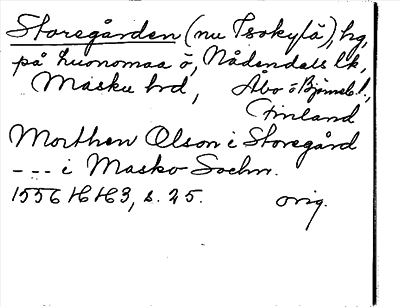 Storegården (nu Isokylä), hg,
på Luonomaa ö, Nådendals lk,
Masku hd, Åbo o Björneb. l.,
Finland
Morthen Olson i Storegård
--- i Masko Sochn.
1556 H H3, s. 25. orig.